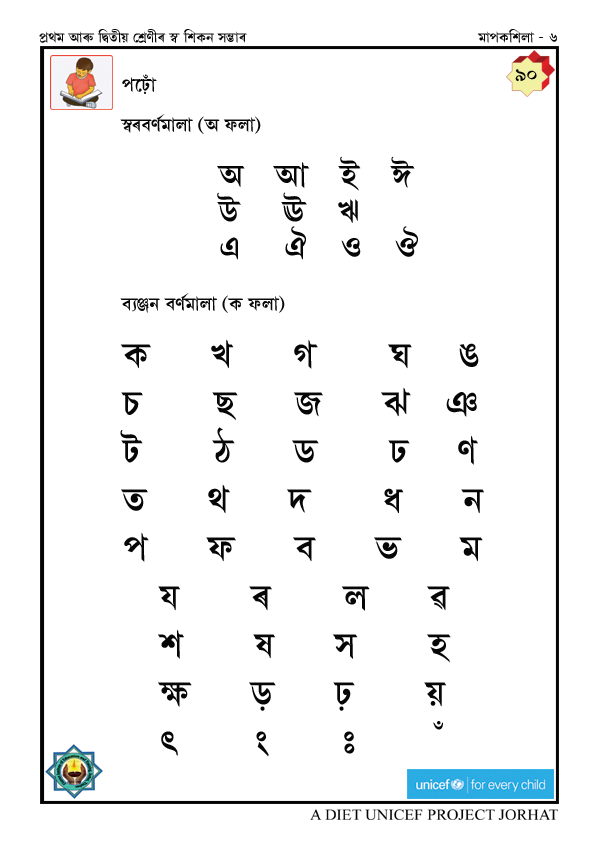 প্ৰথম আৰু দ্বিতীয় শ্ৰেণীৰ স্ব শিকন সম্ভাৰ মাপকশিলা - ৬
৯০
পঢ়োঁ
স্বৰবৰ্ণমালা (অ ফলা)
অ আ ই ঈ
উ ঊ ঋ
এ ঐ ও ঔ
ব্যঞ্জন বৰ্ণমালা (ক ফলা)
ক খ গ ঘ ঙ
চ ছ জ ঝ ঞ
ট ঠ ড ঢ ণ
ত থ দ ধ ন
প ফ ব ভ ম
য ৰ ল ৱ
শ ষ স হ
ক্ষ ড় ঢ় য়
ৎ ং ঃ ঁ
unicef for every child
A DIET UNICEF PROJECT JORHAT